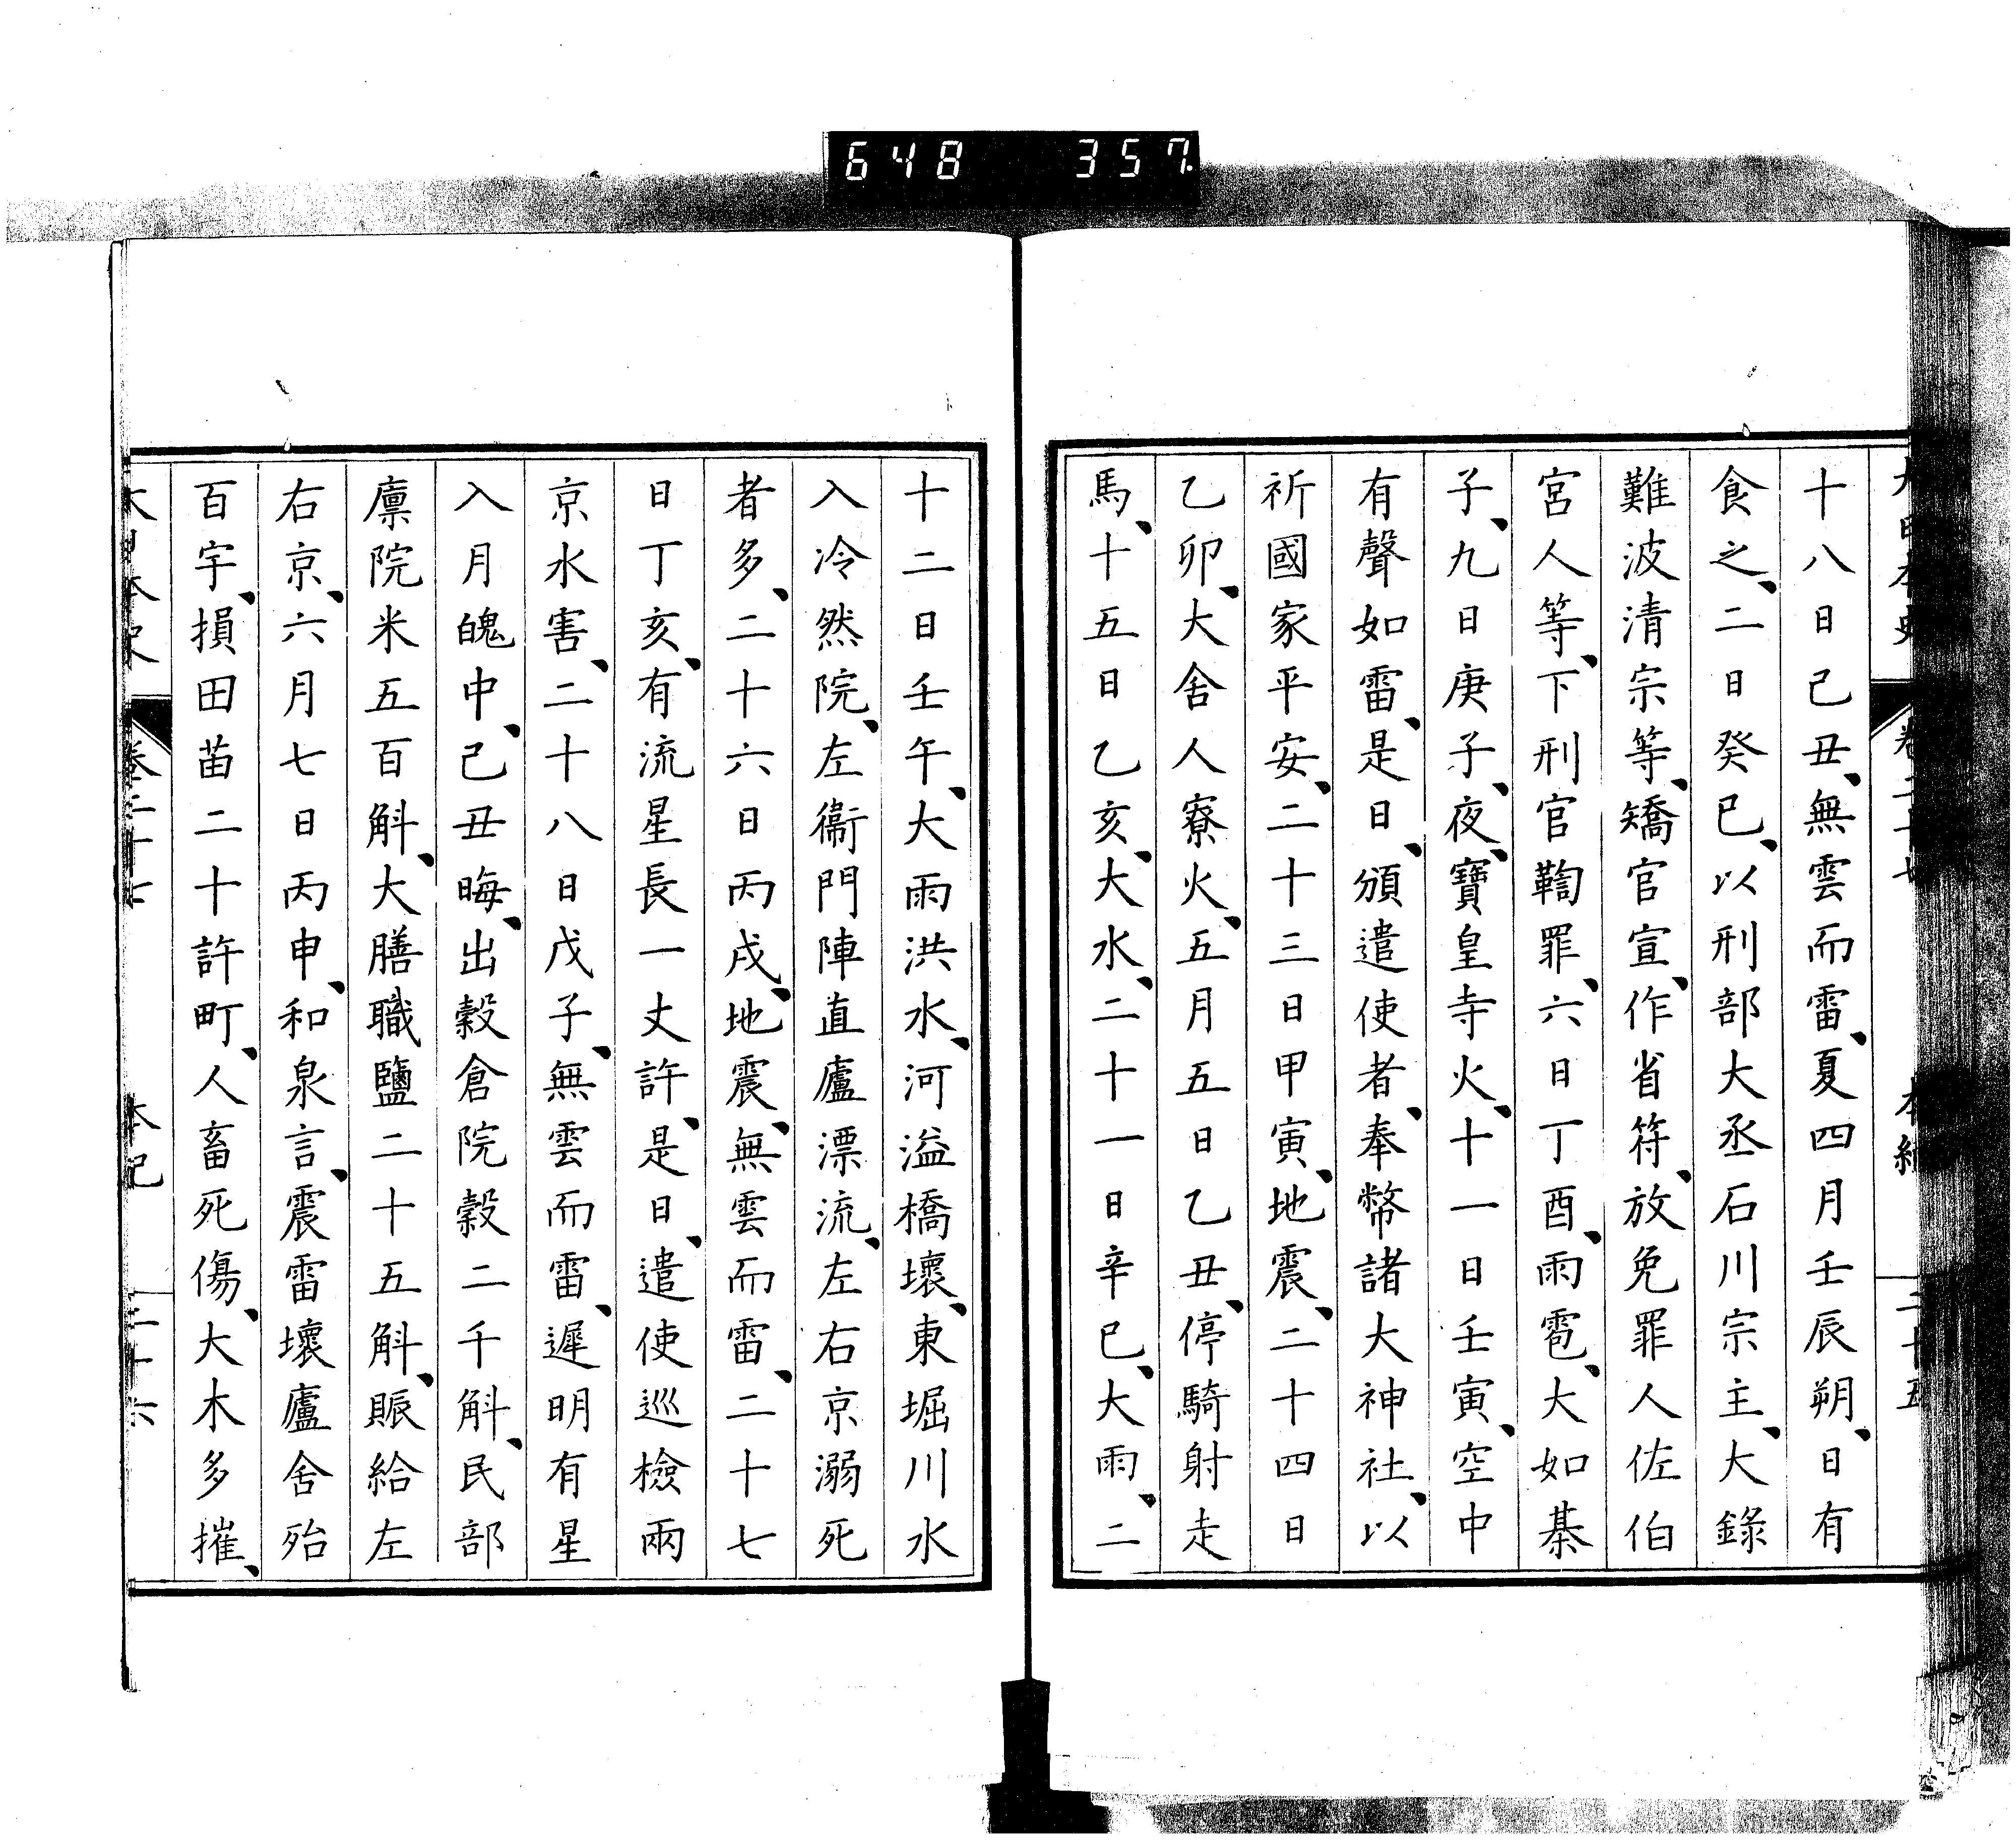 648 357
大日本史 卷二十七 本紀 二十五
十八日己丑、無雲而雷、夏四月壬辰朔、日有
食之、二日癸巳、以刑部大丞石川宗主、大錄
難波清宗等、矯官宣、作省符、放免罪人佐伯
宮人等、下刑官鞫罪、六日丁酉、雨雹、大如棊
子、九日庚子、夜、寶皇寺火、十一日壬寅、空中
有聲如雷、是日、頒遣使者、奉幣諸大神社、以
祈國家平安、二十三日甲寅、地震、二十四日
乙卯、大舍人寮火、五月五日乙丑、停騎射走
馬、十五日乙亥、大水、二十一日辛巳、大雨、二
十二日壬午、大雨洪水、河溢橋壞、東堀川水
入冷然院、左衞門陣直廬漂流、左右京溺死
者多、二十六日丙戌、地震、無雲而雷、二十七
日丁亥、有流星長一丈許、是日、遣使巡檢兩
京水害、二十八日戊子、無雲而雷、遲明有星
入月魄中、己丑晦、出穀倉院穀二千斛、民部
廩院米五百斛、大膳職鹽二十五斛、賑給左
右京、六月七日丙申、和泉言、震雷壞廬舍殆
百宇、損田苗二十許町、人畜死傷、大木多摧、
大日本史 卷二十七 本紀 二十六